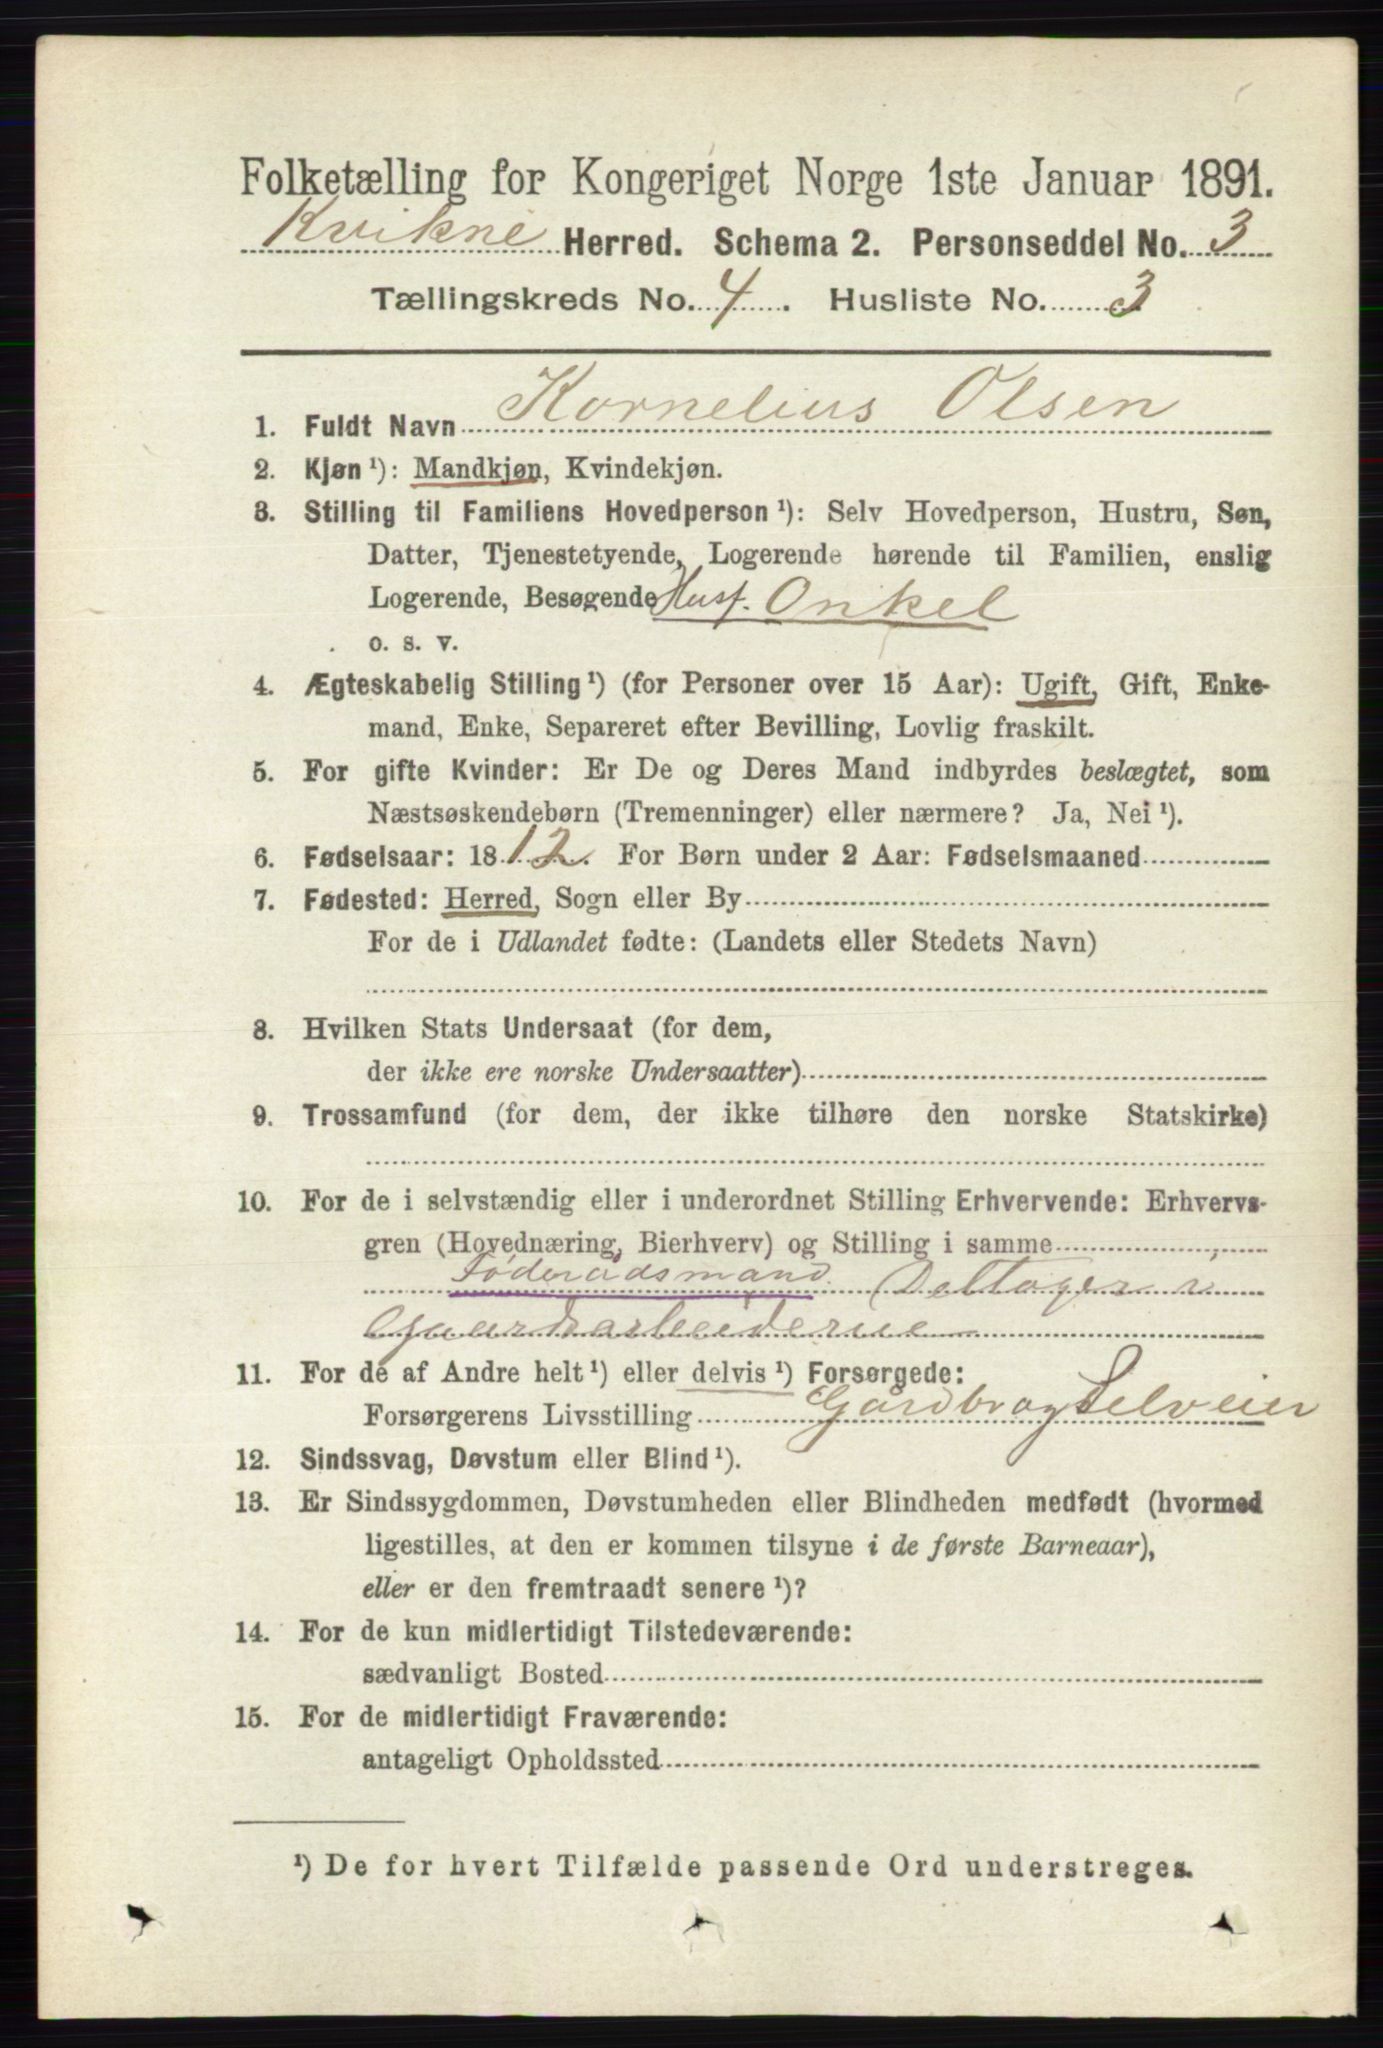 Folketælling for Kongeriget Norge 1ste Januar 1891.
Kvikne Herred. Schema 2. Personseddel No. 3
Tællingskreds No. 4. Husliste No. 3
1. Fuldt Navn Kornelius Olsen
2. Kjøn ¹): Mandkjøn, Kvindekjøn.
3. Stilling til Familiens Hovedperson ¹): Selv Hovedperson, Hustru, Søn,
Datter, Tjenestetyende, Logerende hørende til Familien, enslig
Logerende, Besøgende Husf. Onkel
o. s. v.
4. Ægteskabelig Stilling ¹) (for Personer over 15 Aar): Ugift, Gift, Enke-
mand, Enke, Separeret efter Bevilling, Lovlig fraskilt.
5. For gifte Kvinder: Er De og Deres Mand indbyrdes beslægtet, som
Næstsøskendebørn (Tremenninger) eller nærmere? Ja, Nei ¹).
6. Fødselsaar: 1812. For Børn under 2 Aar: Fødselsmaaned
7. Fødested: Herred, Sogn eller By
For de i Udlandet fødte: (Landets eller Stedets Navn)
8. Hvilken Stats Undersaat (for dem,
der ikke ere norske Undersaatter)
9. Trossamfund (for dem, der ikke tilhøre den norske Statskirke)
10. For de i selvstændig eller i underordnet Stilling Erhvervende: Erhvervs-
gren (Hovednæring, Bierhverv) og Stilling i samme
Føderaadsmand. Deltager i
Gaardsarbeiderne
11. For de af Andre helt ¹) eller delvis ¹) Forsørgede:
Forsørgerens Livsstilling Gårdbr og Selveier
12. Sindssvag, Døvstum eller Blind ¹).
13. Er Sindssygdommen, Døvstumheden eller Blindheden medfødt (hvormed
ligestilles, at den er kommen tilsyne i de første Barneaar),
eller er den fremtraadt senere ¹)?
14. For de kun midlertidigt Tilstedeværende:
sædvanligt Bosted
15. For de midlertidigt Fraværende:
antageligt Opholdssted
¹) De for hvert Tilfælde passende Ord understreges.